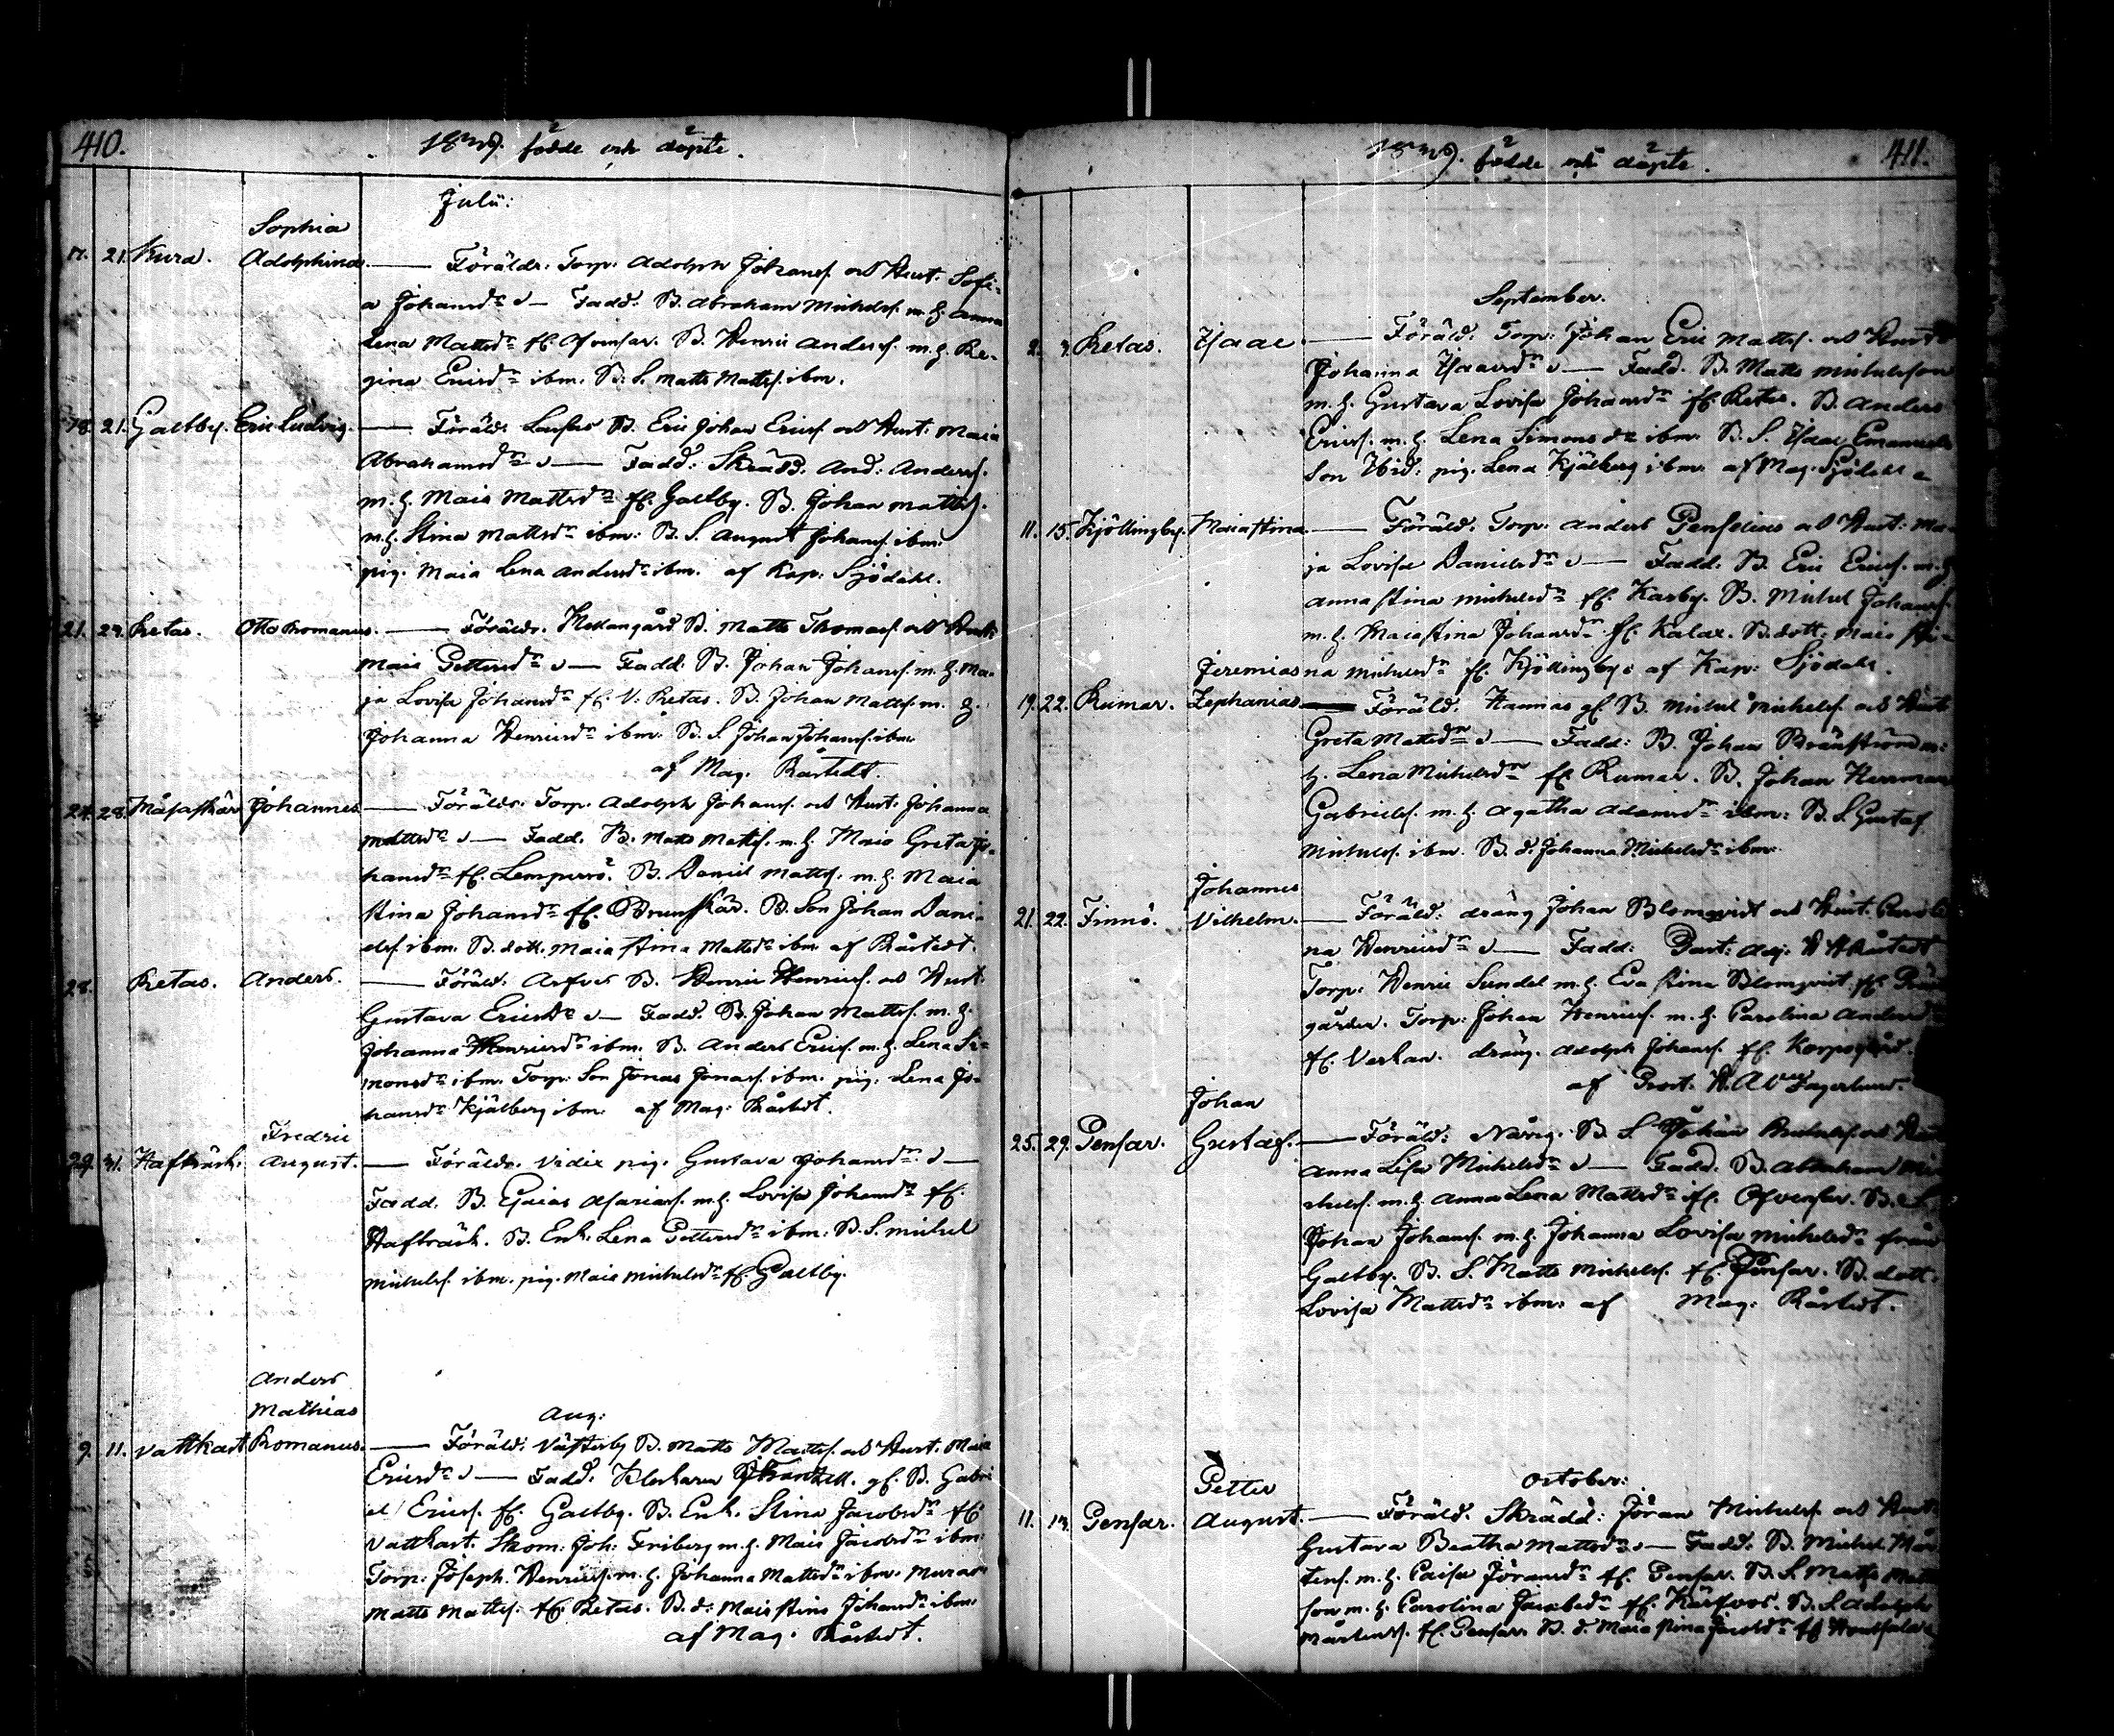 410.
födde och döpte.
Julii:
Sophia
17. 21. Kura. Adolphina — Föräldr: Torp: Adolph Johanss. och Hust. Sofi-
a Johansdr — Fadd. B. Abraham Michelss. m. h. Anna
Lena Mattsdr fr. Ofvensar. B. Henric Anderss. m. h. Re-
gina Ericsdr ibm. B. S. Matts Mattss. ibm.
18. 21. Galtby. Eric Ludvig. — Föräld. B. Eric Johan Ericss. och Hust. Maia
Abrahamsdr — Fadd: Skrädd. And: Anderss.
m. h. Maia Mattsdr fr. Galtby. B. Johan Mattss.
m. h. Stina Mattsdr ibm: B. S. August Johanss. ibm:
pig. Maia Lena Andersdr ibm. af Kap: Sjödahl.
21. Retas. Otto Romanus. — Föräldr. Mellangård B. Matts Thomass. och Hust.
Maia Pettersdr — Fadd. B. Johan Johanss. m. h. Ma-
ja Lovisa Johansdr fr. V. Retas. B. Johan Mattss. m. h.
Johanna Henricsdr ibm: B. S. Johan Johanss. ibm.
af Mag. Råstedt.
24. 28. Måsaskär Johannes — Föräldr. Torp. Adolph Johanss. och Hust. Johanna
Mattsdr — Fadd. B. Matts Mattss. m. h. Maia Greta Jo-
hansdr fr. Lempersö. B. Daniel Mattss. m. h. Maia
Stina Johansdr fr. Brunskär. B. Son Johan Dani-
elss. ibm. B. dott. Maia Stina Mattsdr ibm af Råstedt.
28. Retas. Anders. — Föräld. Arfvas B. Henric Henricss. och Hust.
Gustava Ericsdr — Fadd. B. Johan Mattss. m. h.
Johanna Henricsdr ibm. B. Anders Ericss. m. h. Lena Si-
monsdr ibm. Torp: Son Jonas Jonass. ibm. pig. Lena Jo-
hansdr Kjälberg ibm: af Mag: Råstedt.
Fredric
29. 31. Hafträsk. August. — Föräldr. pig. Gustava Johansdr —
Fadd. B. Esaias Asariass. m. h. Lovisa Johansdr fr.
Hafträsk. B. Enk. Lena Pettersdr ibm: B. S. Michel
Michelss. ibm. pig. Maia Michelsdr fr. Galtby.
Anders
Mathias
Aug:
9. 11. Vattkast Romanus. — Föräld. Västerby B. Matts Mattss. och Hust. Maia
Ericsdr — Fadd. Klockaren gf. B. Gabri
el Ericss. fr. Galtby. B. Enk. Stina Jacobsdr fr
Vattkast. Skom: Joh: Friberg m. h. Maia Jacobsdr ibm:
Torp: Joseph Henricss. m. h. Johanna Mattsdr ibm. Murar
Matts Mattss. fr. Retas. B. d: Maia Stina Johansdr ibm.
af Mag: Råstedt.
födde och döpte.
411.
September.
2. Retas. Isaac — Föräld. Torp: Johan Eric Mattss. och Hust
Johanna Isacsdr — Fadd. B. Matts Michelsson
m. h. Gustava Lovisa Johansdr fr. Retas. B. Anders
Ericss. m. h. Lena Simonsdr ibm. B. S. Isaac Emanuels
Son Ibid: pig. Lena Kjälberg ibm. af Mag. Sjödahl
11. 15. Kjöllingby. Maia Stina. — Föräld. Torp: Anders Penselius och Hust. Ma-
ja Lovisa Danielsdr — Fadd. B. Eric Ericss. m. h
Anna Stina Michelsdr fr. Karby. B. Michel Johanss.
m. h. Maia Stina Johansdr fr. Kalax. B. dott: Maia Sti-
Jeremias na Michelsdr fr. Kjöllingby: af Kap: Sjödahl.
19. 22. Rumar. Zephanias — Föräld. Hannas gf B. Michel Michelss. och Hust
Greta Mattsdr — Fadd: B. Johan Brännström m:
h. Lena Michelsdr fr Rumar. B. Johan Herrman
Gabrielss. m. h. Agatha Adamsdr ibm: B. S. Gustaf
Michelss. ibm. B. d. Johanna Michelsdr ibm:
Johannes
21. 22. Finnö. Vilhelm. — Föräld: dräng Johan Blomqvist och Hust. Caroli
na Henricsdr — Fadd: Past: Adj: Råstedt
Torp: Henric Sundel m. h. Eva Stina Blomqvist fr. Präst
gården. Torp: Johan Henricss. m. h. Carolina Andersdr
fr. Verkan. dräng. Adolph Johanss. fr. Korpogård.
af Prost. Fagerlund.
Johan
25. 29. Pensar. Gustaf. — Föräld: Nårig. B. S. Johan Michelss. och Hust
Anna Lisa Michelsdr — Fadd. B. Abraham Mi-
chelss. m. h. Anna Lena Mattsdr fr. Ofvensar. B. S.
Johan Johanss. m. h. Johanna Lovisa Michelsdr från
Galtby. B. S. Matts Michelss. fr. Pensar. B. dott.
Lovisa Mattsdr ibm: af Mag: Råstedt.
October:
Petter
11. 13. Pensar. August. — Föräld. Skrädd: Jöran Michelss. och Hust
Gustava Beatha Mattsdr — Fadd. B. Michel Mår
tenss. m. h. Caisa Jöransdr fr. Pensar. B. S. Matts Mats
son m. h. Carolina Jacobsdr fr. Kärfvos. B. S. Adolph
Mårtenss. fr. Pensar. B. d. Maia Stina Jacobsdr fr